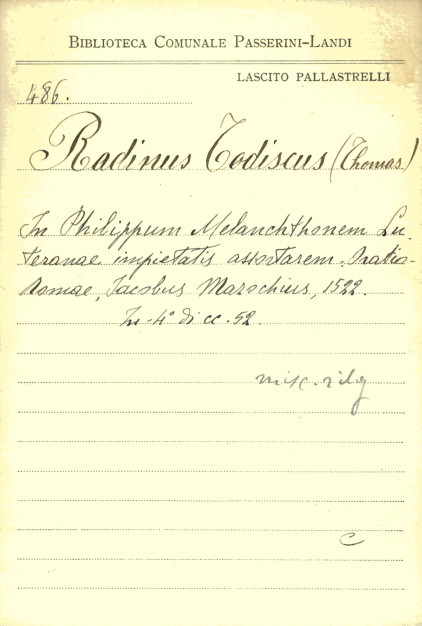 BIBLIOTECA COMUNALE PASSERINI-LANDI
LASCITO PALLASTRELLI
486.
Radinus Todiscus (Thomas)
In Philippum Melanchthonem Lu-
teranae impietatis assertarem. Oratio-
Romae, Jacobus Mazochius, 1522.
In-4° di cc. 52.
misc. rilg
C